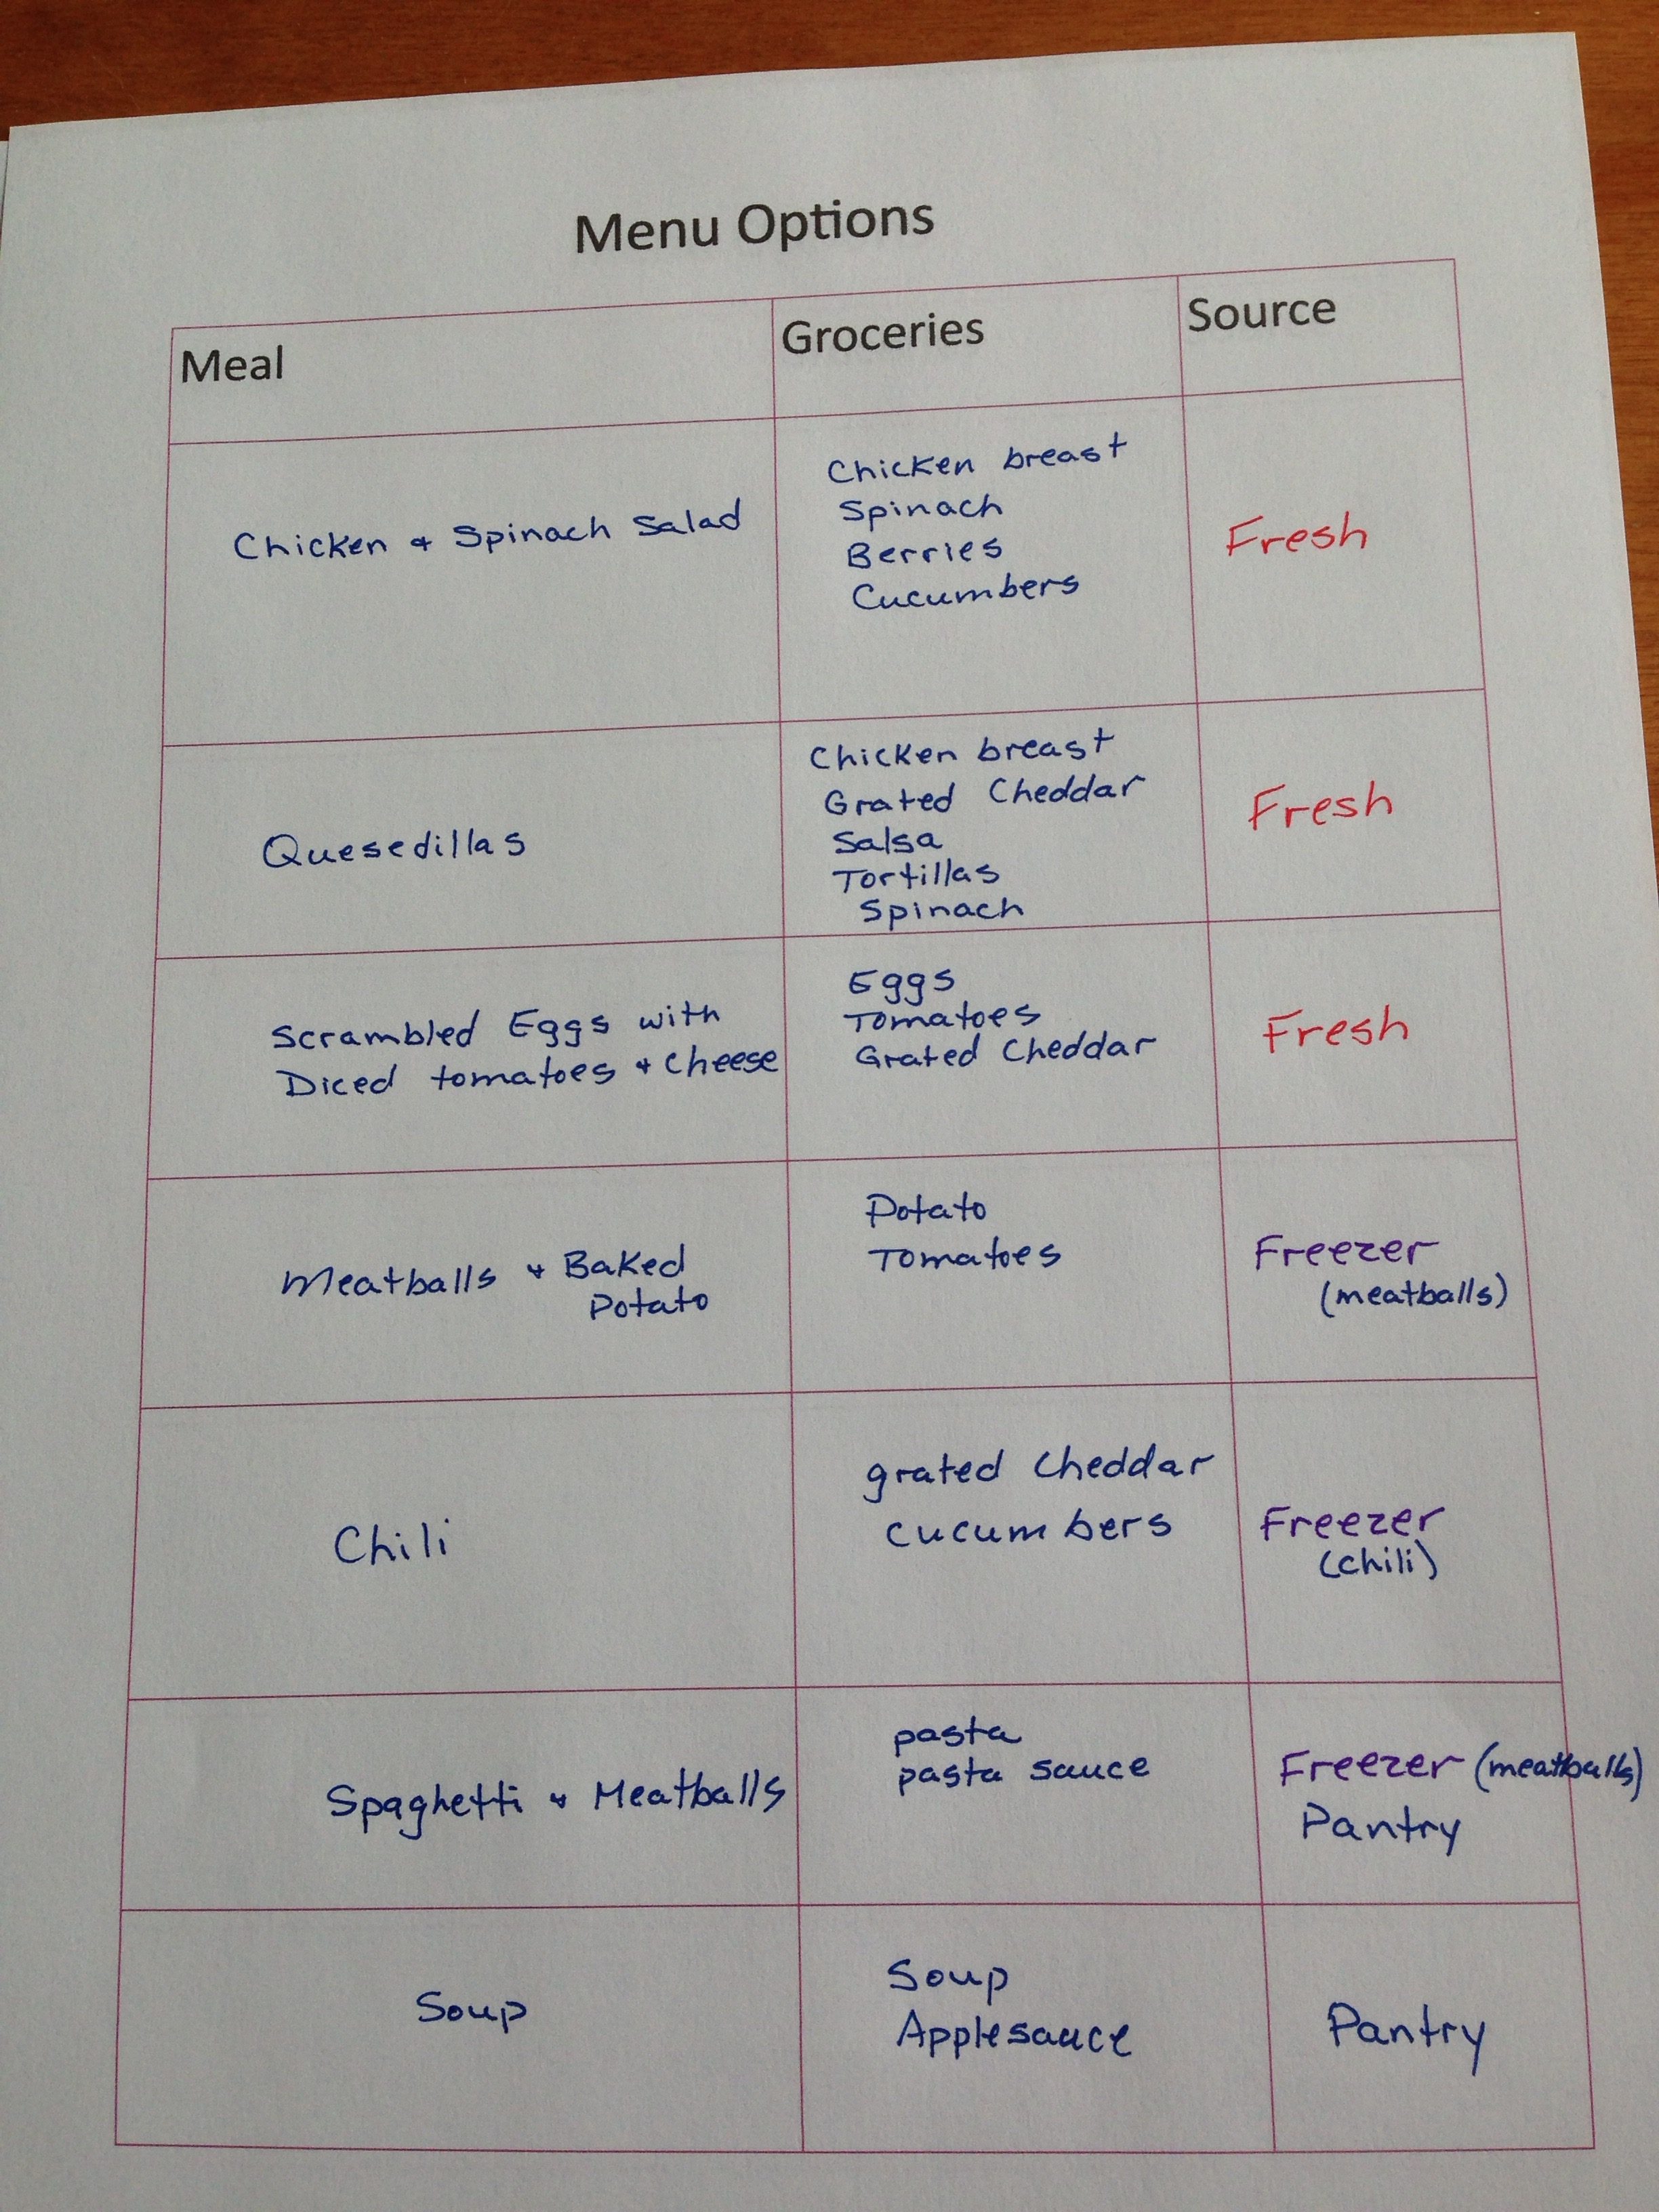 Menu Options
Meal
Groceries
Source
Chicken & Spinach Salad
Chicken breast
Spinach
Berries
Cucumbers
Fresh
Quesedillas
Chicken breast
Grated Cheddar
Salsa
Tortillas
Spinach
Fresh
Scrambled Eggs with
Diced tomatoes & Cheese
Eggs
Tomatoes
Grated Cheddar
Fresh
Meatballs & Baked
Potato
Potato
Tomatoes
Freezer
(meatballs)
Chili
grated Cheddar
cucumbers
Freezer
(chili)
Spaghetti & Meatballs
pasta
pasta sauce
Freezer (meatballs)
Pantry
Soup
Soup
Applesauce
Pantry